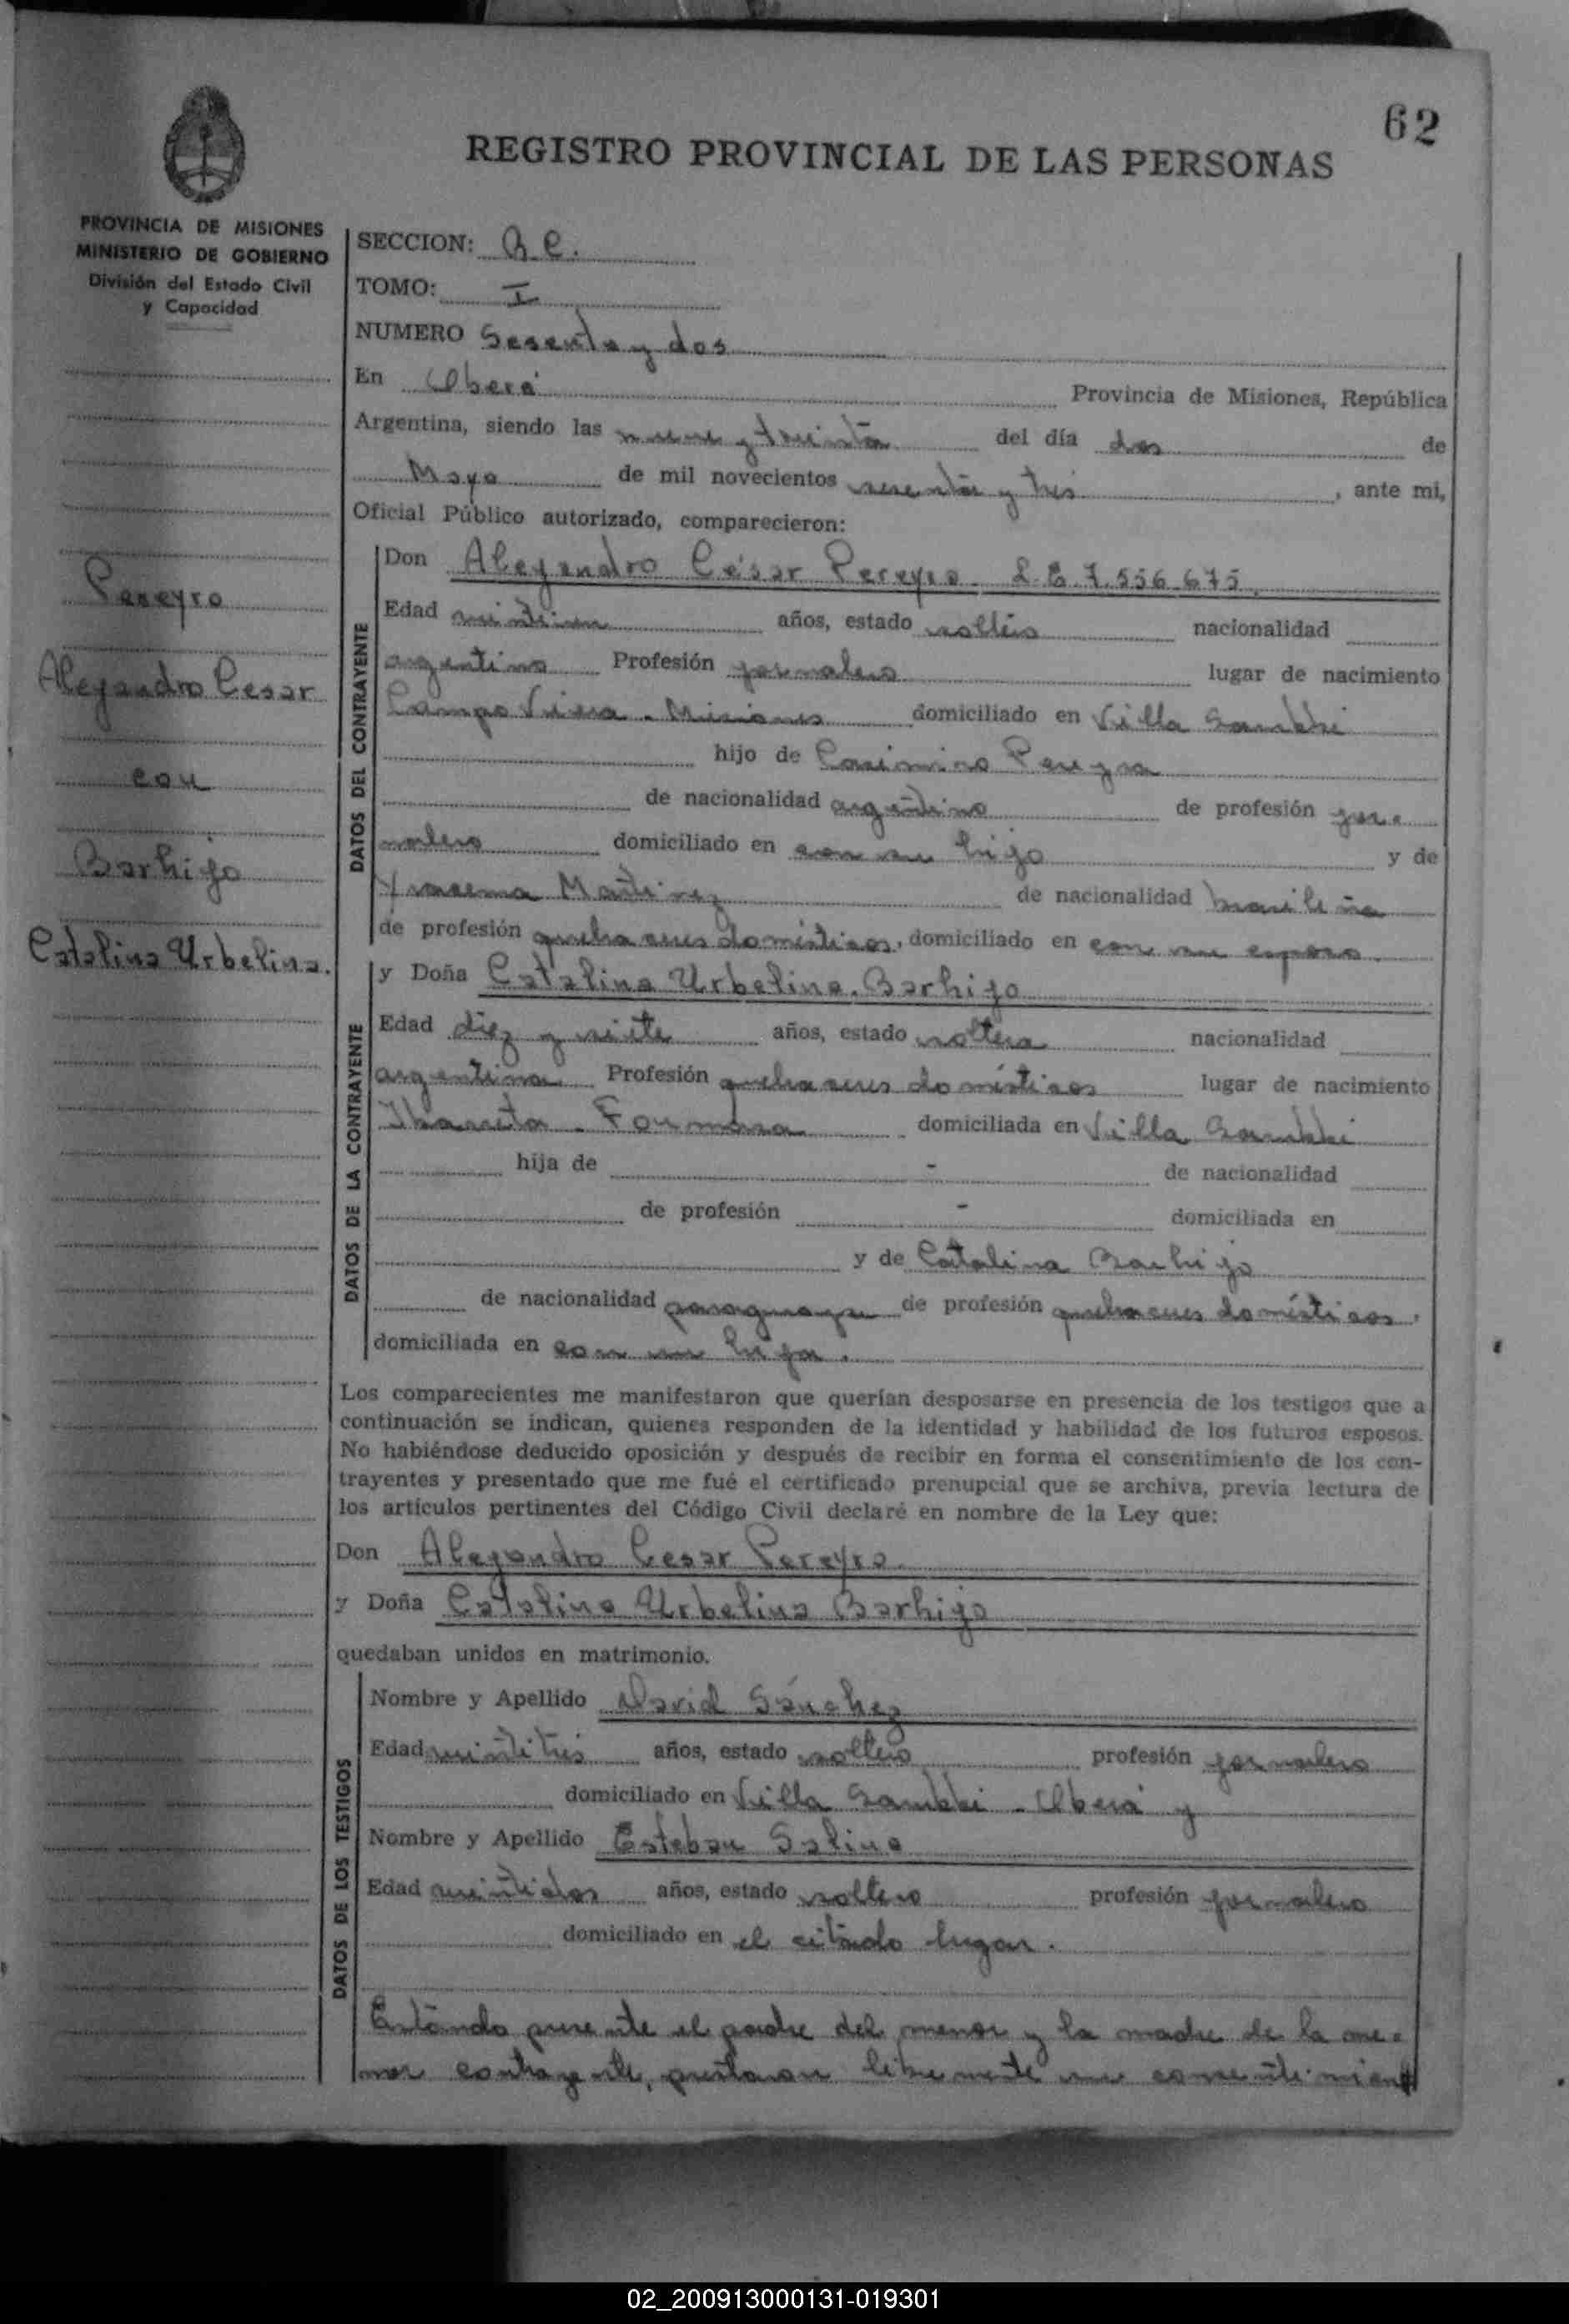 62
REGISTRO PROVINCIAL DE LAS PERSONAS
PROVINCIA DE MISIONES
MINISTERIO DE GOBIERNO
División del Estado Civil
y Capacidad
Pereyra
Alejandro Cesar
con
Barhijo
Catalina Urbelina.
SECCION: R.C.
TOMO: I
NUMERO Sesenta y dos
En Oberá Provincia de Misiones, República
Argentina, siendo las nueve y treinta del día dos de
Mayo de mil novecientos sesenta y tres, ante mi,
Oficial Público autorizado, comparecieron:
DATOS DEL CONTRAYENTE
Don Alejandro César Pereyra. L.E. 7.556.675.
Edad años, estado soltero nacionalidad
argentino Profesión jornalero lugar de nacimiento
Campo Viera - Misiones domiciliado en Villa
hijo de Casimiro Pereyra
de nacionalidad argentino de profesión jor-
nalero domiciliado en con su hijo y de
Yracema Martinez de nacionalidad brasileña
de profesión quehaceres domésticos, domiciliado en con su esposo.
DATOS DE LA CONTRAYENTE
y Doña Catalina Urbelina Barhijo
Edad diez y siete años, estado soltera nacionalidad
argentina Profesión quehaceres domésticos lugar de nacimiento
Ibarreta - Formosa domiciliada en Villa
hija de - de nacionalidad
de profesión - domiciliada en
y de Catalina Barhijo
de nacionalidad paraguaya de profesión quehaceres domésticos,
domiciliada en con su hija.
Los comparecientes me manifestaron que querían desposarse en presencia de los testigos que a
continuación se indican, quienes responden de la identidad y habilidad de los futuros esposos.
No habiéndose deducido oposición y después de recibir en forma el consentimiento de los con-
trayentes y presentado que me fué el certificado prenupcial que se archiva, previa lectura de
los artículos pertinentes del Código Civil declaré en nombre de la Ley que:
Don Alejandro Cesar Pereyra
y Doña Catalina Urbelina Barhijo
quedaban unidos en matrimonio.
DATOS DE LOS TESTIGOS
Nombre y Apellido David Sánchez
Edad veintitres años, estado soltero profesión jornalero
domiciliado en Villa - Oberá y
Nombre y Apellido Esteban Salina
Edad veintidos años, estado soltero profesión jornalero
domiciliado en el citado lugar.
Estando presente el padre del menor y la madre de la me-
nor contrayente, prestaron libremente su consentimient
02_200913000131-019301